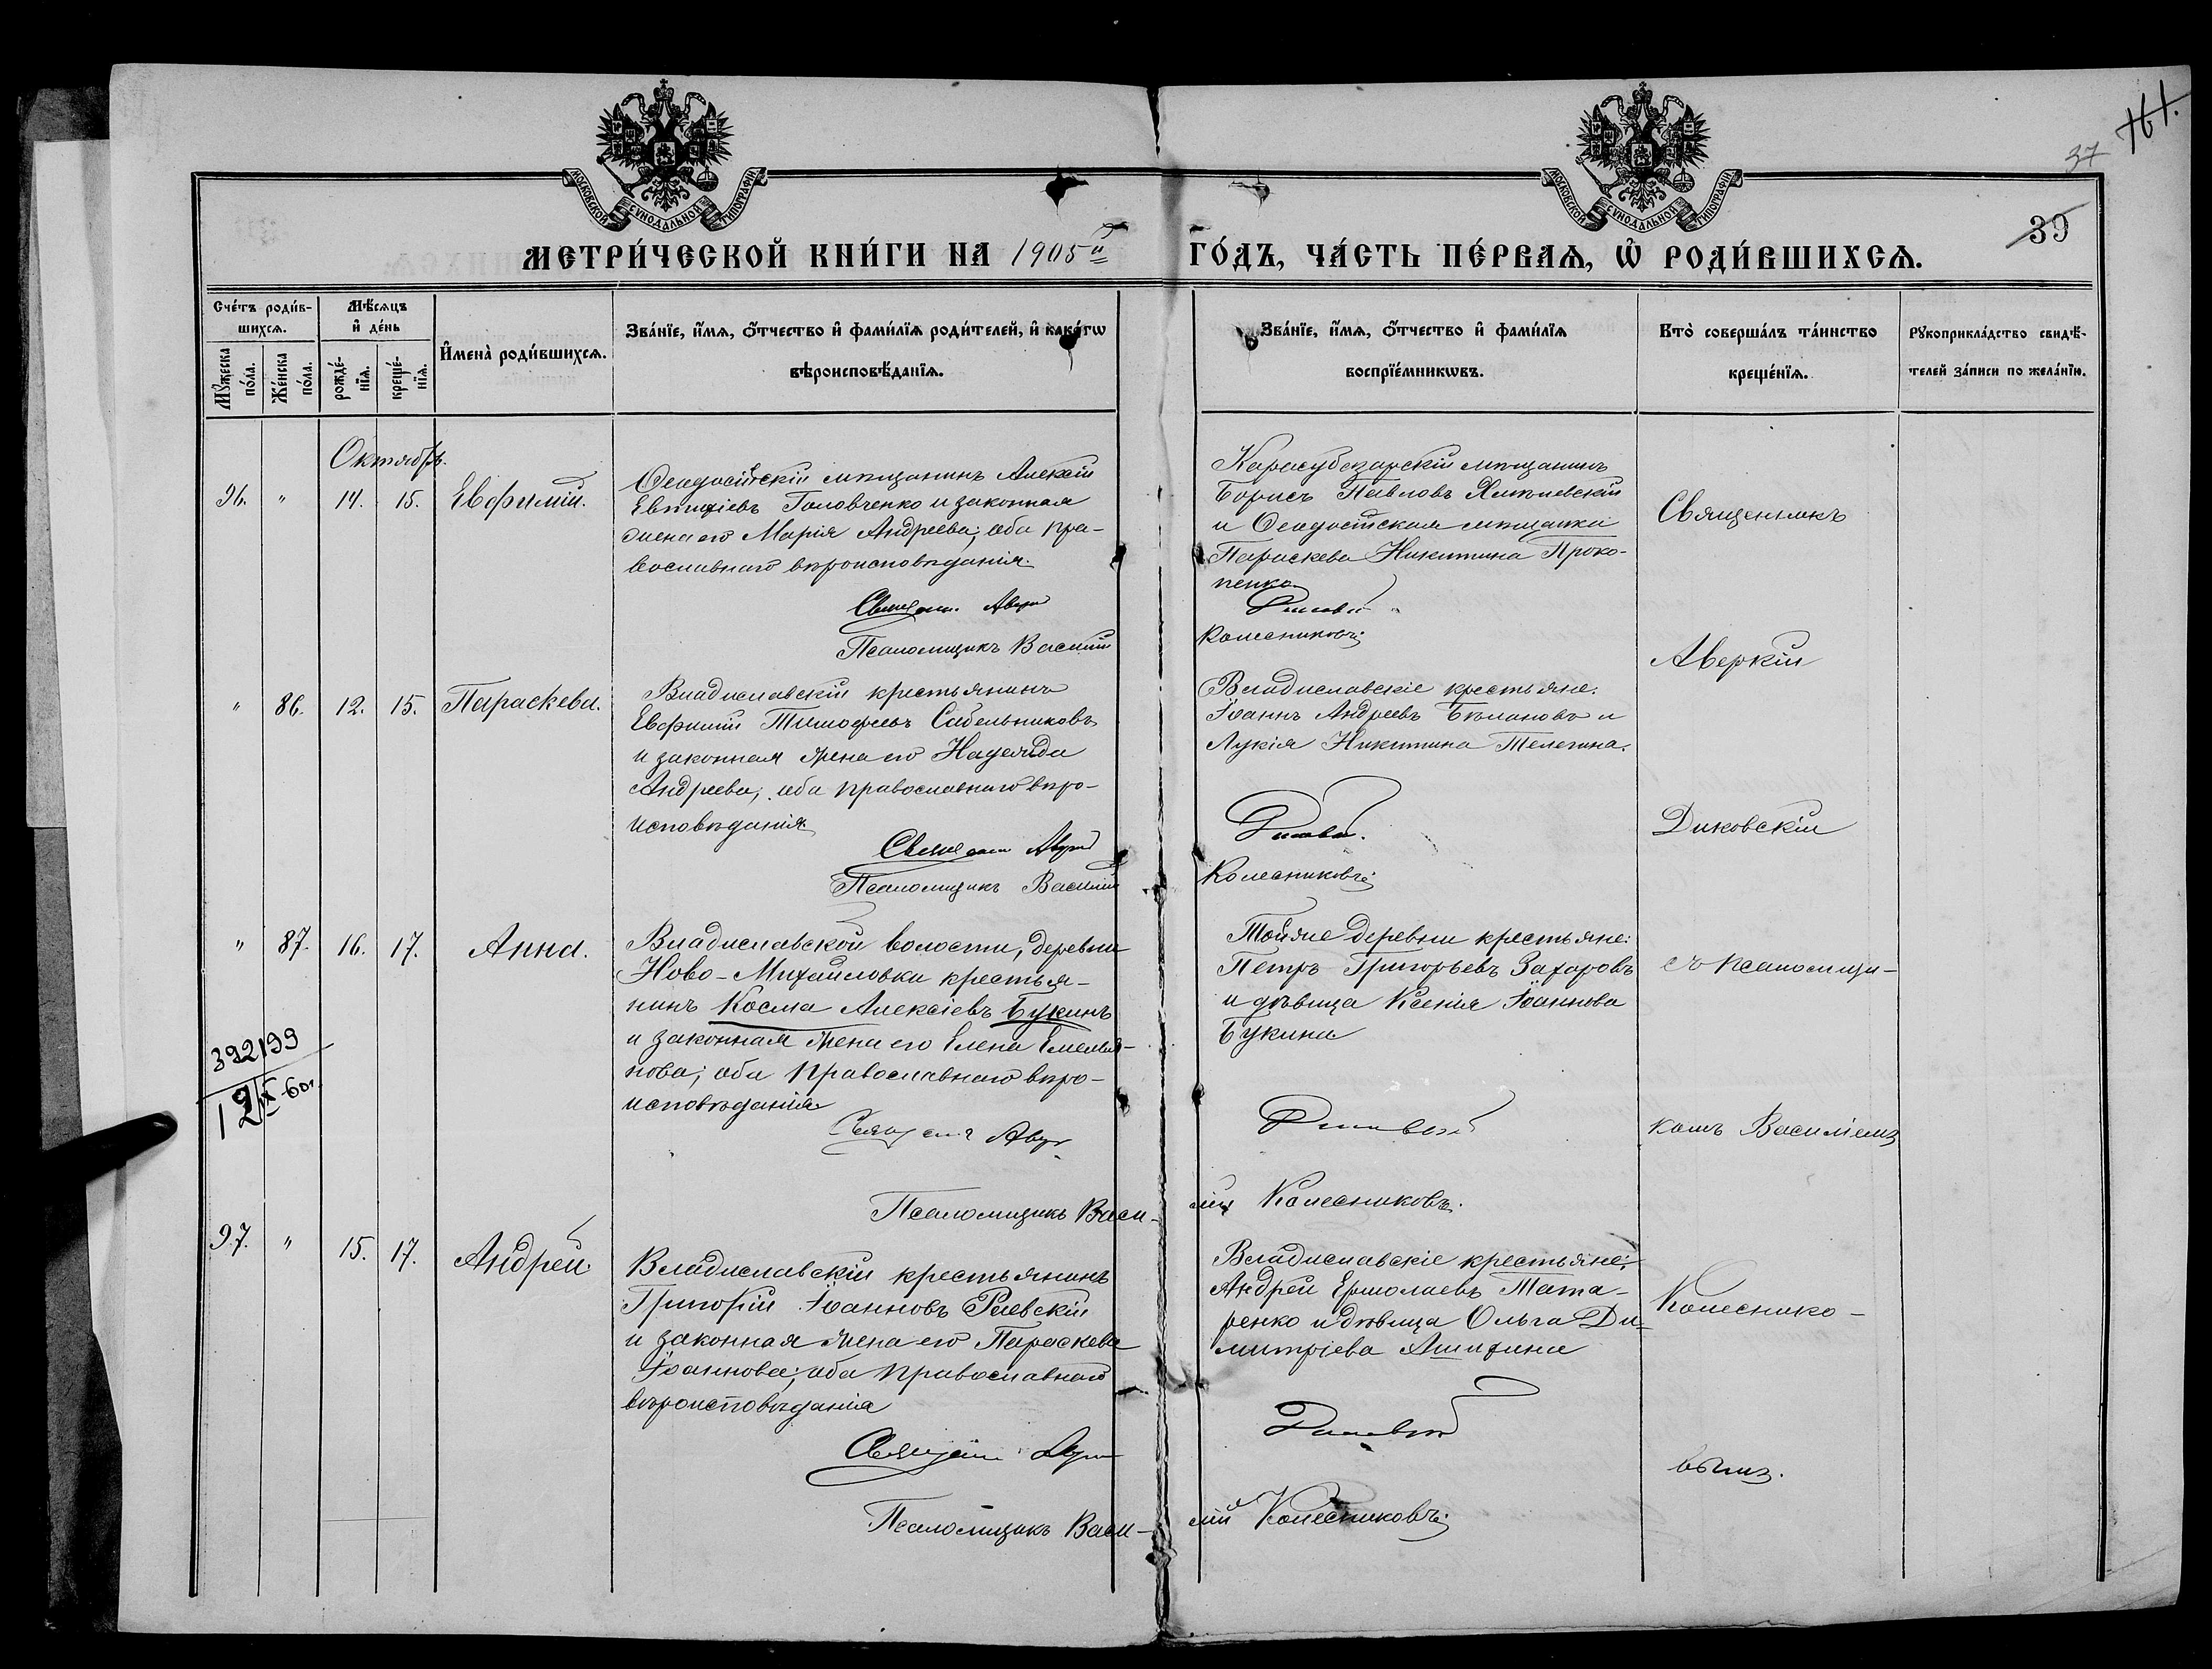 161.
37
39
МОСКОВСКОЙ СѴНОДАЛЬНОЙ ТИПОГРАФІИ
МОСКОВСКОЙ СѴНОДАЛЬНОЙ ТИПОГРАФІИ
МЕТРИ́ЧЕСКОЙ КНИ́ГИ НА 1905й ГО́ДЪ, ЧА́СТЬ ПЕ́РВАѦ, Ѡ҆ РОДИ́ВШИХСѦ.
Сче́тъ роди́в-
шихсѧ.
Мꙋ́жеска по́ла.
Же́нска по́ла.
Мѣ́сѧцъ
и҆ де́нь
рожде́-
нїѧ.
креще́-
нїѧ.
И҆мена̀ роди́вшихсѧ.
Зва́нїе, и҆́мѧ, ѻ҆́тчество и҆ фами́лїѧ роди́телей, и҆ како́гѡ
вѣроисповѣ́данїѧ.
Зва́нїе, и҆́мѧ, ѻ҆́тчество и҆ фами́лїѧ
воспрїе́мникѡвъ.
Кто̀ соверша́лъ та́инство
креще́нїѧ.
Рꙋкоприкла́дство свидѣ́-
телей за́писи по жела́нїю.
Октябрь.
96. " 14. 15. Евфимій.
Ѳеодосійскій мѣщанинъ Алексій
Евтихіевъ Головченко и законная
жена его Марія Андреева; оба пра-
вославнаго вѣроисповѣданія.
Священ. Авер
Псаломщикъ Василій
Карасубазарскій мѣщанинъ
Борисъ Павловъ
и Ѳеодосійская мѣщанка
Параскева Никитина Проко-
пенко
Колесниковъ
Священникъ
Аверкій
" 86. 12. 15. Параскева.
Владиславскій крестьянинъ
Евфимій Тимофеевъ Сабельниковъ
и законная жена его Надежда
Андреева; оба православнаго вѣро-
исповѣданія.
Священ Авер
Псаломщикъ Василій
Владиславскіе крестьяне:
Іоаннъ Андреевъ Бѣлановъ и
Лукія Никитина Телегина.
Колесниковъ
Диковскій
" 87. 16. 17. Анна.
Владиславской волости, деревни
Ново-Михайловки крестья-
нинъ Косма Алексіевъ Букинъ
и законная жена его Елена Емелья-
нова; оба православнаго вѣро-
исповѣданія
Священ Авер
Псаломщикъ Васи-
лій Колесниковъ.
Той же деревни крестьяне:
Петръ Григорьевъ Захаровъ
и дѣвица Ксенія Іоаннова
Букина
съ псаломщи-
комъ Василіемъ
392199
12/IX-60г.
97. " 15. 17. Андрей.
Владиславскій крестьянинъ
Григорій Іоанновъ Раевскій
и законная жена его Параскева
Іоаннова; оба православнаго
вѣроисповѣданія
Священ
Псаломщикъ Васи-
лій Колесниковъ
Владиславскіе крестьяне:
Андрей Ермолаевъ Тата-
ренко и дѣвица Ольга Ди-
митріева Ашихина
Колеснико-
вымъ.